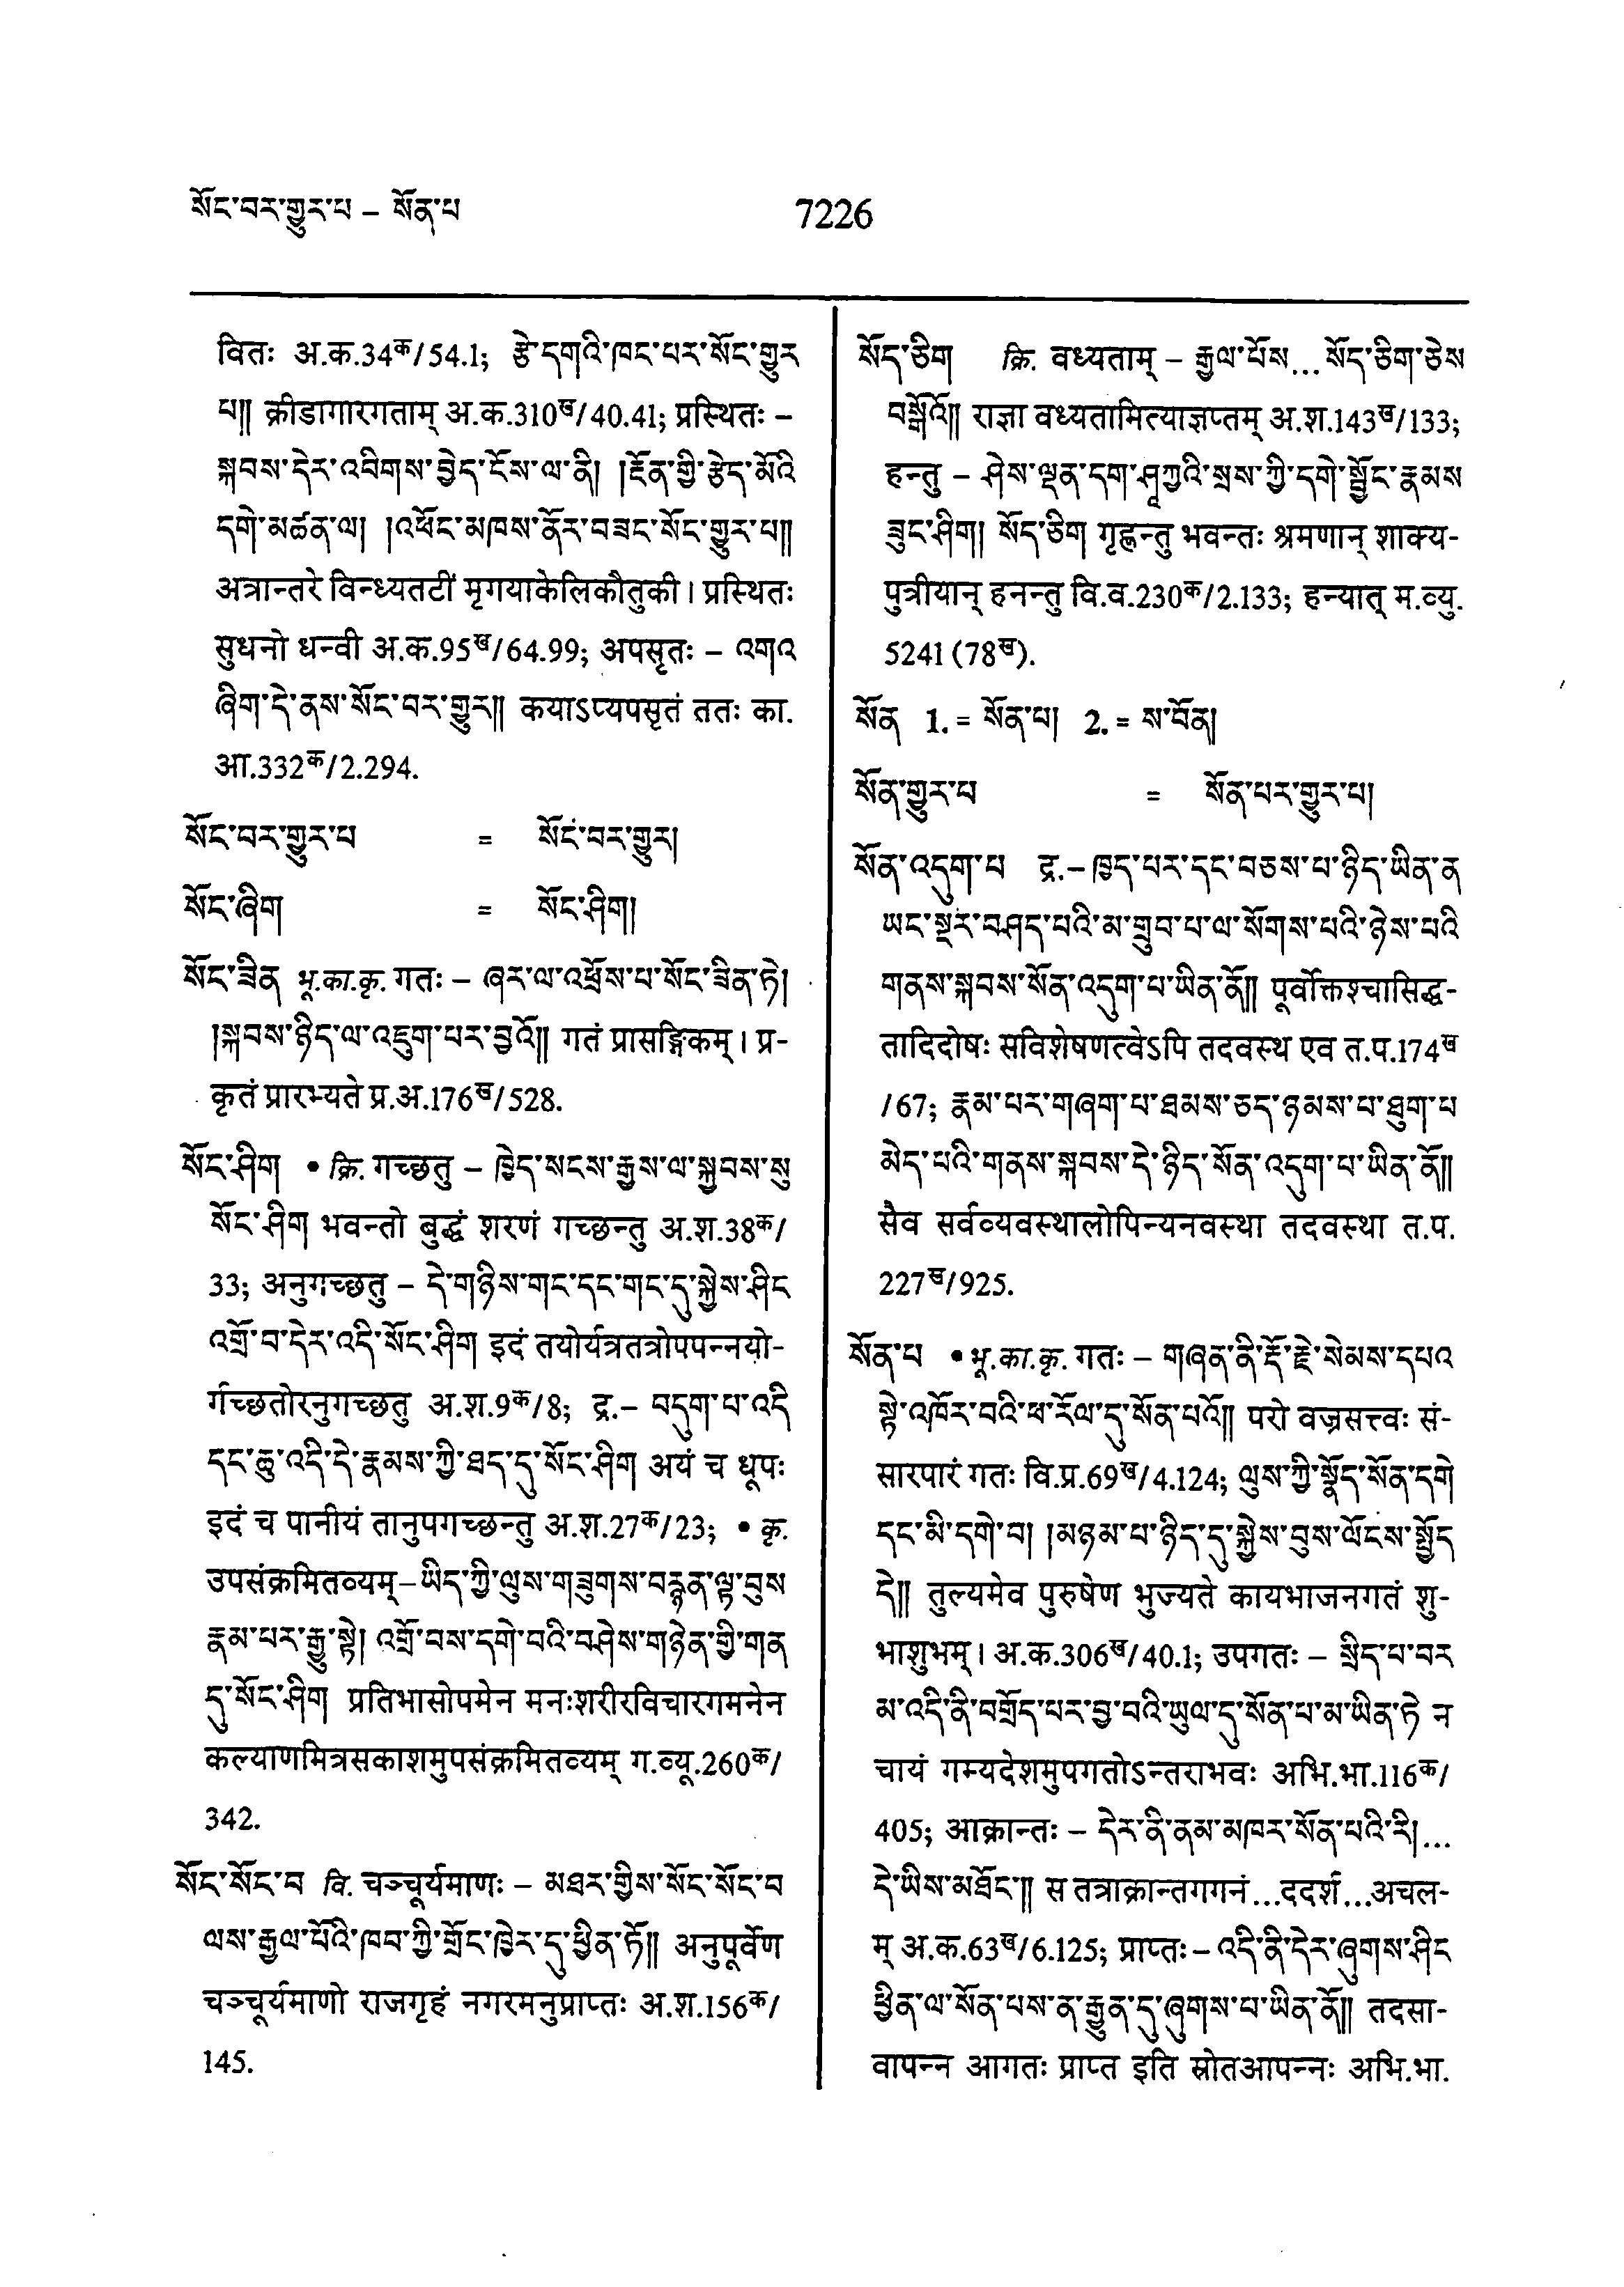 སོང་བར་གྱུར་པ – སོན་པ
7226
वितः अ.क.34क/54.1; རྩེ་དགའི་ཁང་པར་སོང་གྱུར
པ།། क्रीडागारगताम् अ.क.310ख/40.41; प्रस्थितः –
སྐབས་དེར་འབིགས་བྱེད་ངོས་ལ་ནི། །རྔོན་གྱི་རྩེད་མོའི
དགེ་མཚན་ལ། །འཕོང་མཁས་ནོར་བཟང་སོང་གྱུར་པ།།
अत्रान्तरे विन्ध्यतटीं मृगयाकेलिकौतुकी। प्रस्थितः
सुधनो धन्वी अ.क.95ख/64.99; अपसृतः – འགའ
ཞིག་དེ་ནས་སོང་བར་གྱུར།། कयाऽप्यपसृतं ततः का.
आ.332क/2.294.
སོང་བར་གྱུར་པ = སོང་བར་གྱུར།
སོང་ཞིག = སོང་ཤིག།
སོང་ཟིན भू.का.कृ. गतः – ཞར་ལ་འཕྲོས་པ་སོང་ཟིན་ཏེ།
།སྐབས་ཉིད་ལ་འཇུག་པར་བྱའོ།། गतं प्रासङ्गिकम्। प्र-
कृतं प्रारभ्यते प्र.अ.176ख/528.
སོང་ཤིག • क्रि. गच्छतु – ཁྱེད་སངས་རྒྱས་ལ་སྐྱབས་སུ
སོང་ཤིག भवन्तो बुद्धं शरणं गच्छन्तु अ.श.38क/
33; अनुगच्छतु – དེ་གཉིས་གང་དང་གང་དུ་སྐྱེས་ཤིང
འགྲོ་བ་དེར་འདི་སོང་ཤིག इदं तयोर्यत्रतत्रोपपन्नयो-
र्गच्छतोरनुगच्छतु अ.श.9क/8; द्र.– བདུག་པ་འདི
དང་ཆུ་འདི་དེ་རྣམས་ཀྱི་ཐད་དུ་སོང་ཤིག अयं च धूपः
इदं च पानीयं तानुपगच्छन्तु अ.श.27क/23; • कृ.
उपसंक्रमितव्यम्–ཡིད་ཀྱི་ལུས་གཟུགས་བརྙན་ལྟ་བུས
རྣམ་པར་རྒྱུ་སྟེ། འགྲོ་བས་དགེ་བའི་བཤེས་གཉེན་གྱི་གན
དུ་སོང་ཤིག प्रतिभासोपमेन मनःशरीरविचारगमनेन
कल्याणमित्रसकाशमुपसंक्रमितव्यम् ग.व्यू.260क/
342.
སོང་སོང་བ वि. चञ्चूर्यमाणः – མཐར་གྱིས་སོང་སོང་བ
ལས་རྒྱལ་པོའི་ཁབ་ཀྱི་གྲོང་ཁྱེར་དུ་ཕྱིན་ཏོ།། अनुपूर्वेण
चञ्चूर्यमाणो राजगृहं नगरमनुप्राप्तः अ.श.156क/
145.
སོད་ཅིག क्रि. वध्यताम् – རྒྱལ་པོས... སོད་ཅིག་ཅེས
བསྒོའོ།། राज्ञा वध्यतामित्याज्ञप्तम् अ.श.143ख/133;
हन्तु – ཤེས་ལྡན་དག་ཤཱཀྱའི་སྲས་ཀྱི་དགེ་སྦྱོང་རྣམས
ཟུང་ཤིག། སོད་ཅིག गृह्णन्तु भवन्तः श्रमणान् शाक्य-
पुत्रीयान् हनन्तु वि.व.230क/2.133; हन्यात् म.व्यु.
5241 (78ख).
སོན 1. = སོན་པ། 2. = ས་བོན།
སོན་གྱུར་པ = སོན་པར་གྱུར་པ།
སོན་འདུག་པ द्र.– ཁྱད་པར་དང་བཅས་པ་ཉིད་ཡིན་ན
ཡང་སྔར་བཤད་པའི་མ་གྲུབ་པ་ལ་སོགས་པའི་ཉེས་པའི
གནས་སྐབས་སོན་འདུག་པ་ཡིན་ནོ།། पूर्वोक्तश्चासिद्ध-
तादिदोषः सविशेषणत्वेऽपि तदवस्थ एव त.प.174ख
/67; རྣམ་པར་གཞག་པ་ཐམས་ཅད་ཉམས་པ་ཐུག་པ
མེད་པའི་གནས་སྐབས་དེ་ཉིད་སོན་འདུག་པ་ཡིན་ནོ།།
सैव सर्वव्यवस्थालोपिन्यनवस्था तदवस्था त.प.
227ख/925.
སོན་པ • भू.का.कृ. गतः – གཞན་ནི་རྡོ་རྗེ་སེམས་དཔའ
སྟེ་འཁོར་བའི་ཕ་རོལ་དུ་སོན་པའོ།། परो वज्रसत्त्वः सं-
सारपारं गतः वि.प्र.69ख/4.124; ལུས་ཀྱི་སྣོད་སོན་དགེ
དང་མི་དགེ་བ། །མཉམ་པ་ཉིད་དུ་སྐྱེས་བུས་ལོངས་སྤྱོད
དེ།། तुल्यमेव पुरुषेण भुज्यते कायभाजनगतं शु-
भाशुभम्। अ.क.306ख/40.1; उपगतः – སྲིད་པ་བར
མ་འདི་ནི་བགྲོད་པར་བྱ་བའི་ཡུལ་དུ་སོན་པ་མ་ཡིན་ཏེ न
चायं गम्यदेशमुपगतोऽन्तराभवः अभि.भा.116क/
405; आक्रान्तः – དེར་ནི་ནམ་མཁར་སོན་པའི་རི།...
དེ་ཡིས་མཐོང་།། स तत्राक्रान्तगगनं...ददर्श...अचल-
म् अ.क.63ख/6.125; प्राप्तः – འདི་ནི་དེར་ཞུགས་ཤིང
ཕྱིན་ལ་སོན་པས་ན་རྒྱུན་དུ་ཞུགས་པ་ཡིན་ནོ།། तदसा-
वापन्न आगतः प्राप्त इति स्रोतआपन्नः अभि.भा.